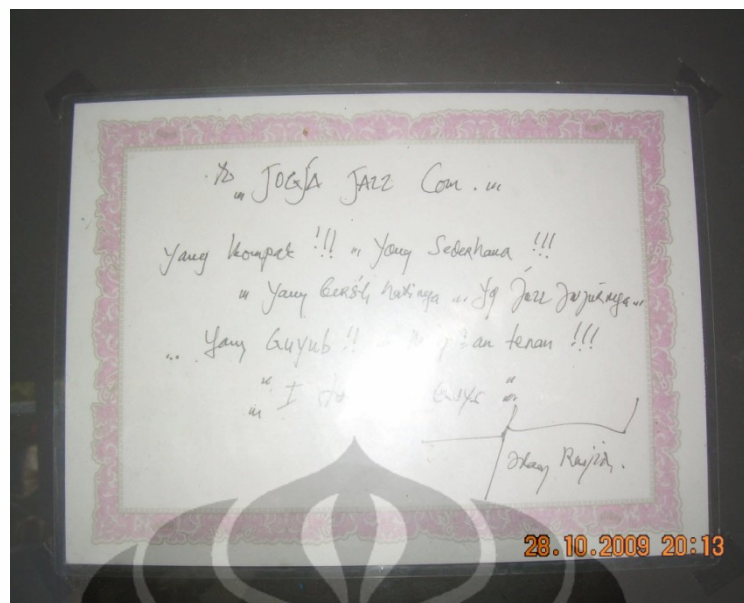 " JOGJA JAZZ Com. "
Yang kompak !!! " Yang Sederhana !!!
" Yang bersih hatinya " Yg Jazz Jujurnya "
... Yang Guyub !! tenan !!!
" I Guys "
28.10.2009 20:13